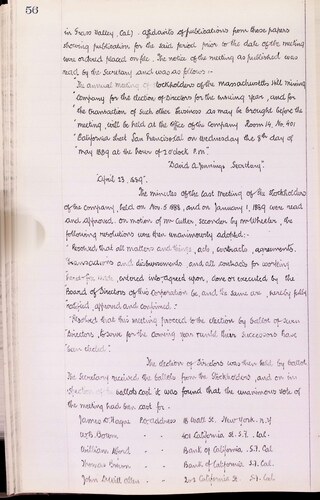 56
in Grass Valley, Cal). Affidavits of publications from these papers
showing publication for the said period prior to the date of the meeting
were ordered placed on file. The notice of the meeting as published was
read by the Secretary and was as follows:-
"The annual meeting of Stockholders of the Massachusetts Hill Mining
Company for the election of Directors for the ensuing year, and for
the transaction of such other business as may be brought before the
meeting, will be held at the office of the Company Room 14, No. 401
California Street San Francisco Cal on Wednesday the 8th day of
May 1889 at the hour of 1 o'clock P.M."
Secretary".
"April 23, 1889".
The minutes of the last meeting of the Stockholders
of the company, held on Nov. 5 1888, and on January 1, 1889 were read
and approved. On motion of Mr Cutler seconded by Mr Wheeler, the
following resolutions were then unanimously adopted:-
"Resolved that all matters and things, acts, contracts, agreements,
transactions and disbursements, and all contracts for working
entered into, agreed upon, done or executed by the
Board of Directors of this Corporation be, and the same are, hereby fully
ratified, approved and confirmed."
"Resolved that this meeting proceed to the election by ballot of seven
Directors, to serve for the coming year or until their successors have
been elected".
The election of Directors was then held by ballot.
The Secretary received the ballots from the Stockholders, and on in-
spection of the ballots cast it was found that the unanimous vote of
the meeting had been cast for -
James D. Hague Po. address 18 Wall St. New York. N.Y
W.B. Bourn " 401 California St. S.F. Cal.
William Alvord " Bank of California. S.F. Cal
Thomas Brown " Bank of California S.F. Cal.
John " California St S.F. Cal